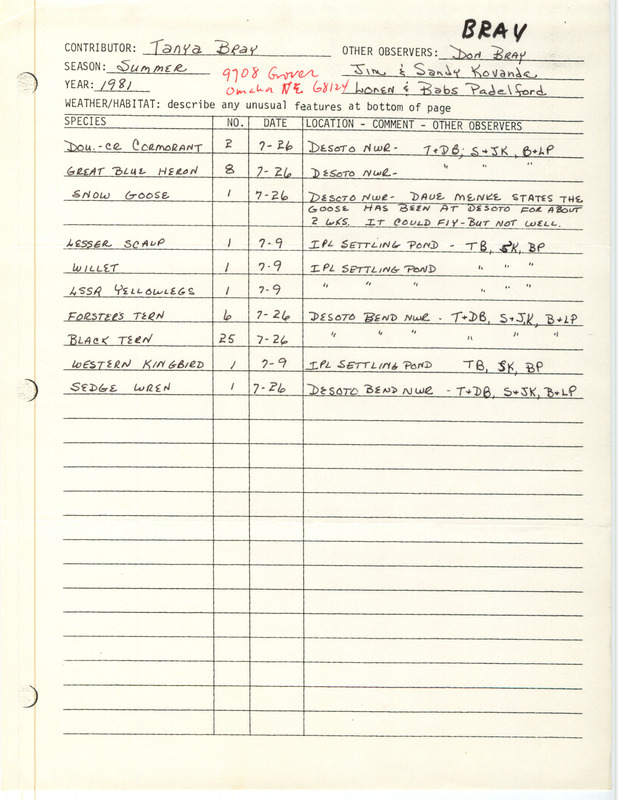 BRAY
CONTRIBUTOR: Tanya Bray OTHER OBSERVERS: Don Bray
SEASON: Summer 9708 Grover Jim & Sandy Kovanda
YEAR: 1981 Omaha NE 68124 Loren & Babs Padelford
WEATHER/HABITAT: describe any unusual features at bottom of page
SPECIES NO. DATE LOCATION - COMMENT - OTHER OBSERVERS
DOU.-CR CORMORANT 2 7-26 DESOTO NWR- T+DB; S+JK, B+LP
GREAT BLUE HERON 8 7-26 DESOTO NWR- " " "
SNOW GOOSE 1 7-26 DESOTO NWR- DAVE MENKE STATES THE
GOOSE HAS BEEN AT DESOTO FOR ABOUT
2 WKS. IT COULD FLY-BUT NOT WELL.
LESSER SCAUP 1 7-9 IPL SETTLING POND - TB, SK, BP
WILLET 1 7-9 IPL SETTLING POND " " "
LSSR YELLOWLEGS 1 7-9 " " " " " "
FORSTER'S TERN 6 7-26 DESOTO BEND NWR - T+DB, S+JK, B+LP
BLACK TERN 25 7-26 " " " " " "
WESTERN KINGBIRD 1 7-9 IPL SETTLING POND TB, SK, BP
SEDGE WREN 1 7-26 DESOTO BEND NWR - T+DB, S+JK, B+LP